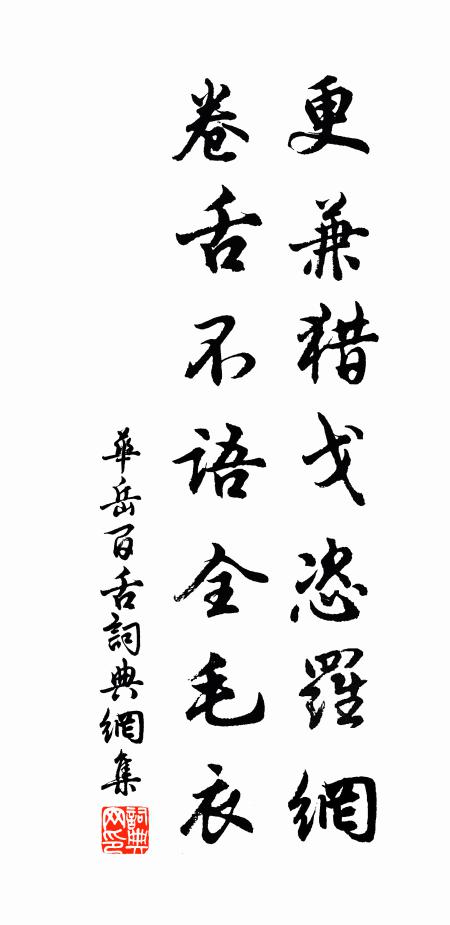 更兼猎戈恣羅網
卷舌不語全毛衣
華岳百舌詞典網集
詞典网印